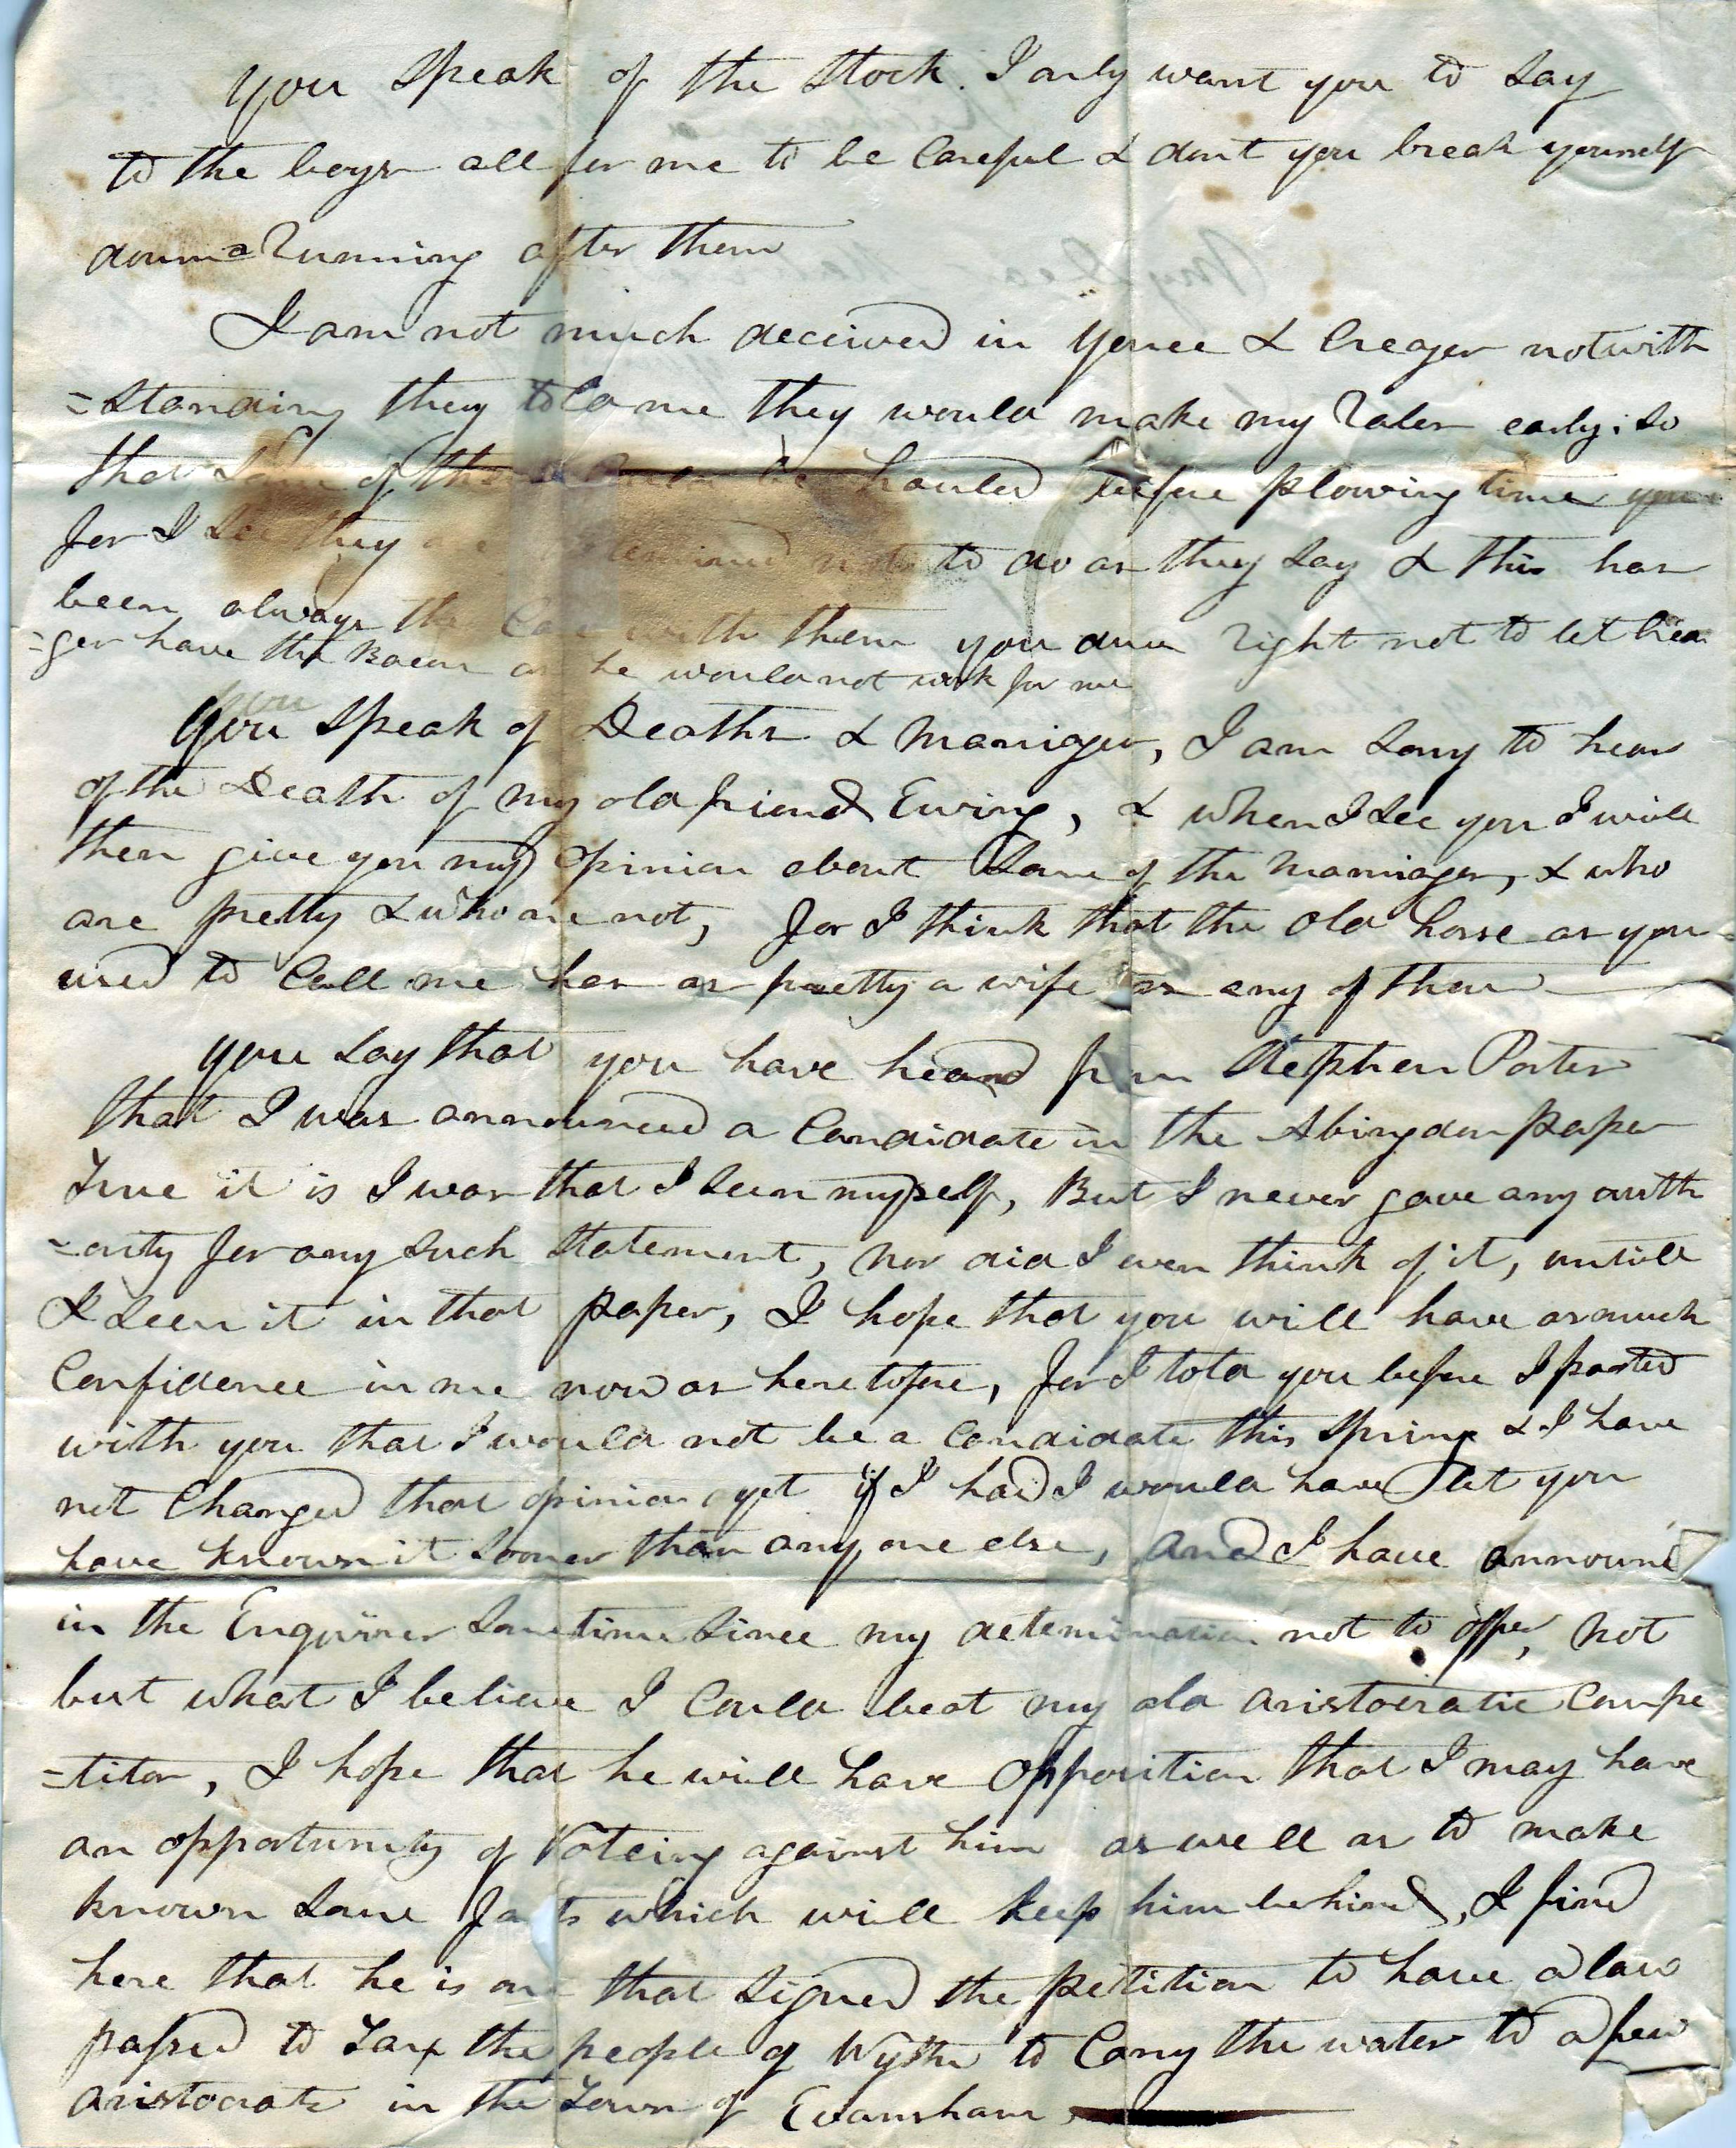 You Speak of the Stock. I only want you to Say
to the boys all for me to be Careful & dont you break yourself
down a Running after them
I am not much deceived in Yonce & Creager notwith
=standing they told me they would make my Rales early; So
that Some of them Could be hauled before plowing time
for I See they are determined not to do as they Say & this has
been always the Case with them you done right not to let Crea
=ger have the Bacon as he would not work for me
You Speak of Deaths & Marriages, I am Sorry to hear
of the Death of my old friend Ewing, & when I See you I will
then give you my Opinion about Some of the Marriages, & who
are pretty & who are not, for I think that the Old horse as you
used to Call me has as pretty a wife as any of them
You Say that you have heard from Stephen Porter
that I was announced a Candidate in the Abingdon paper
True it is I was that I Seen myself, But I never gave any auth
=ority for any Such Statement, nor did I even think of it, untill
I Seen it in that paper, I hope that you will have as much
Confidence in me now as heretofore, for I told you before I parted
with you that I would not be a Candidate this Spring & I have
not Changed that opinion yet if I had I would have let you
have known it Sooner than any one else, and I have annound
in the Enquirer Sometime Since my determination not to offer, not
but what I believe I Could beat my old aristocratic Compe
=titor, I hope that he will have Opposition that I may have
an opportunity of Voteing against him as well as to make
known Some Facts which will keep him behind, I find
here that he is one that Signed the petition to have a law
passed to Tax the people of Wythe to Carry the water to a few
aristocrats in the Town of Evansham